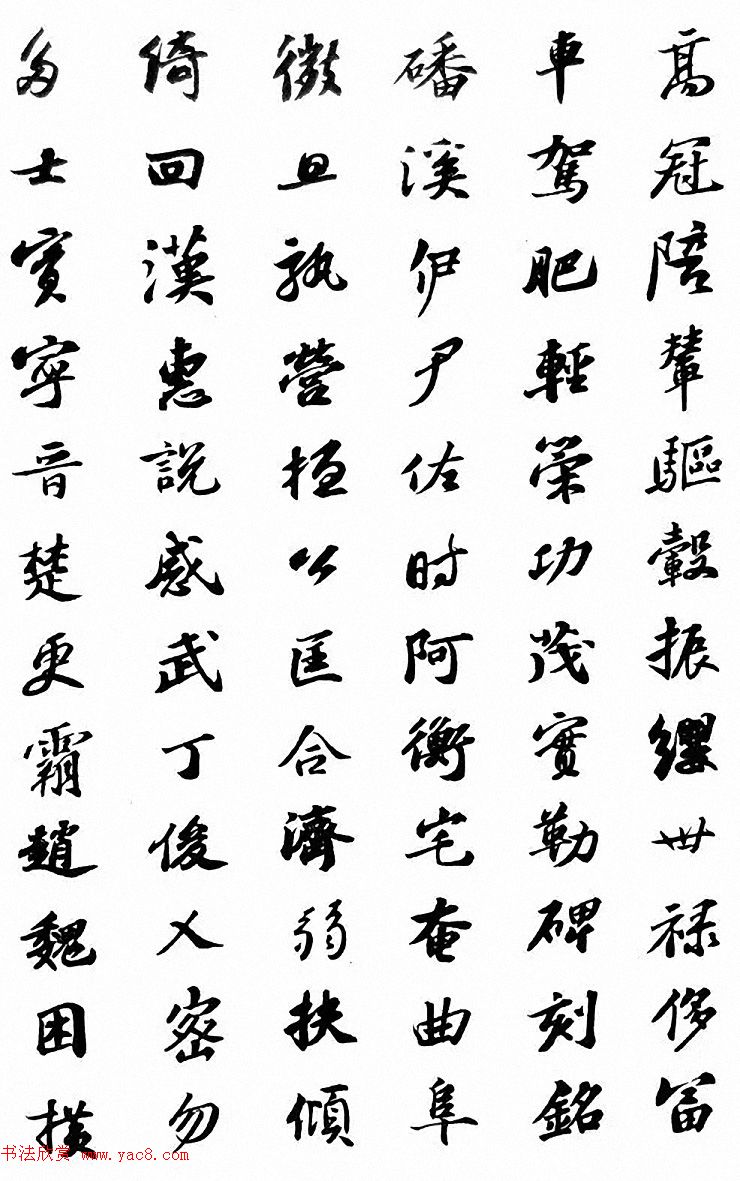 高冠陪輦驅轂振纓世禄侈富
車駕肥輕策功茂實勒碑刻銘
磻溪伊尹佐时阿衡宅奄曲阜
微旦孰營桓公匡合濟弱扶傾
綺回漢惠說感武丁俊乂密勿
多士寔寧晉楚更霸趙魏困橫
书法欣赏 www.yac8.com